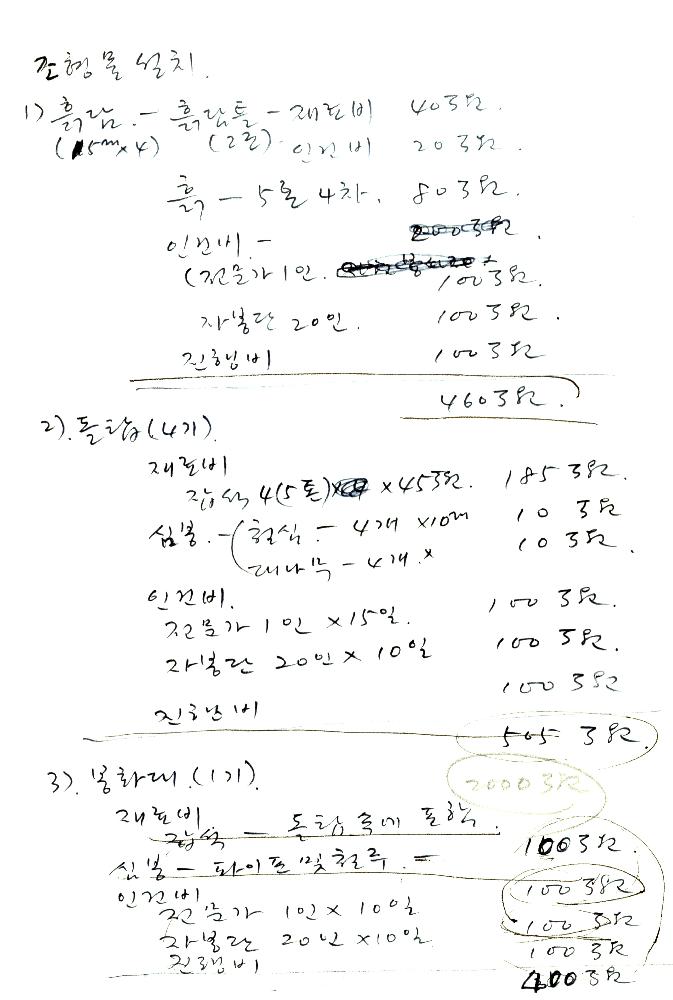 조형물 설치.
1) 흙담. - 흙담틀 - 재료비 40만원.
(15m×4) (2틀). 인건비 20만원.
흙 - 5톤 4차. 80만원.
인건비 -
(전문가 1인. 100만원.
자봉단 20인. 100만원.
진행비 100만원
460만원.
2). 돌탑(4기).
재료비
잡석 4(5톤) × 45만원. 185만원.
심봉. - (철심. - 4개 × 10m 10만원
대나무 - 4개. × 10만원.
인건비.
전문가 1인 × 15일. 100만원.
자봉단 20인 × 10일 100만원.
진행비 100만원
505만원.
3). 봉화대. (1기). 2000만원
재료비
잡석 - 돌탑 속에 포함. 100만원.
심봉 - 파이프 및 철류. = 100만원
인건비
전문가 1인 × 10일 100만원
자봉단 20인 × 10일 100만원
진행비 400만원